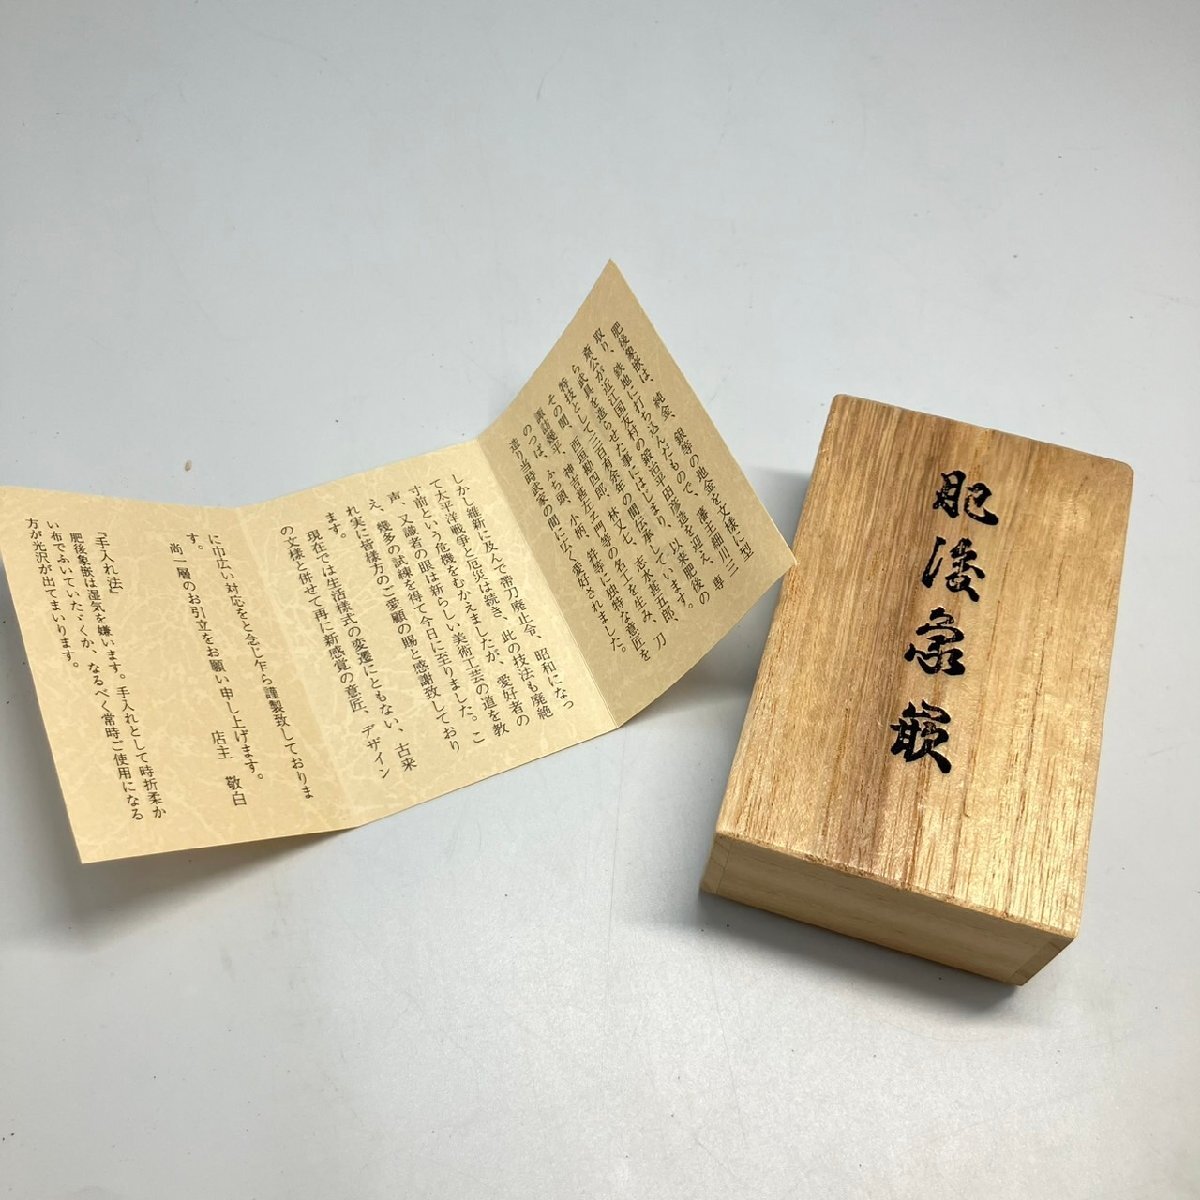 肥後象嵌は、純金、銀等の地金を文様に型
取り、鉄地に打ち込んだもので、藩主細川三
斎公が近江国友村の鍛冶平田彦造を迎え、専
ら武具を造らせた事にはじまり、以来肥後の
特技として三百有余年の間伝承しています。
その間、西垣勘四郎、林又七、志水甚五郎、
諏訪幾平、神吉甚左ヱ門等の名工を生み、刀
のつば、ふち頭、小柄、笄等に独特な意匠を
造り当時武家の間に広く愛好されました。
しかし維新に及んで帯刀廃止令、昭和になっ
て太平洋戦争と厄災は続き、此の技法も廃絶
寸前という危機をむかえましたが、愛好者の
声、又識者の眼は新らしい美術工芸の道を教
え、幾多の試練を得て今日に至りました。こ
れ実に皆様方のご愛顧の賜と感謝致しており
ます。
現在では生活様式の変遷にともない、古来
の文様と併せて再に新感覚の意匠、デザイン
に巾広い対応をと念じ乍ら謹製致しておりま
す。
尚一層のお引立をお願い申し上げます。
店主 敬白
「手入れ法」
肥後象嵌は湿気を嫌います。手入れとして時折柔か
い布でふいていただくか、なるべく常時ご使用になる
方が光沢が出てまいります。
肥後象嵌